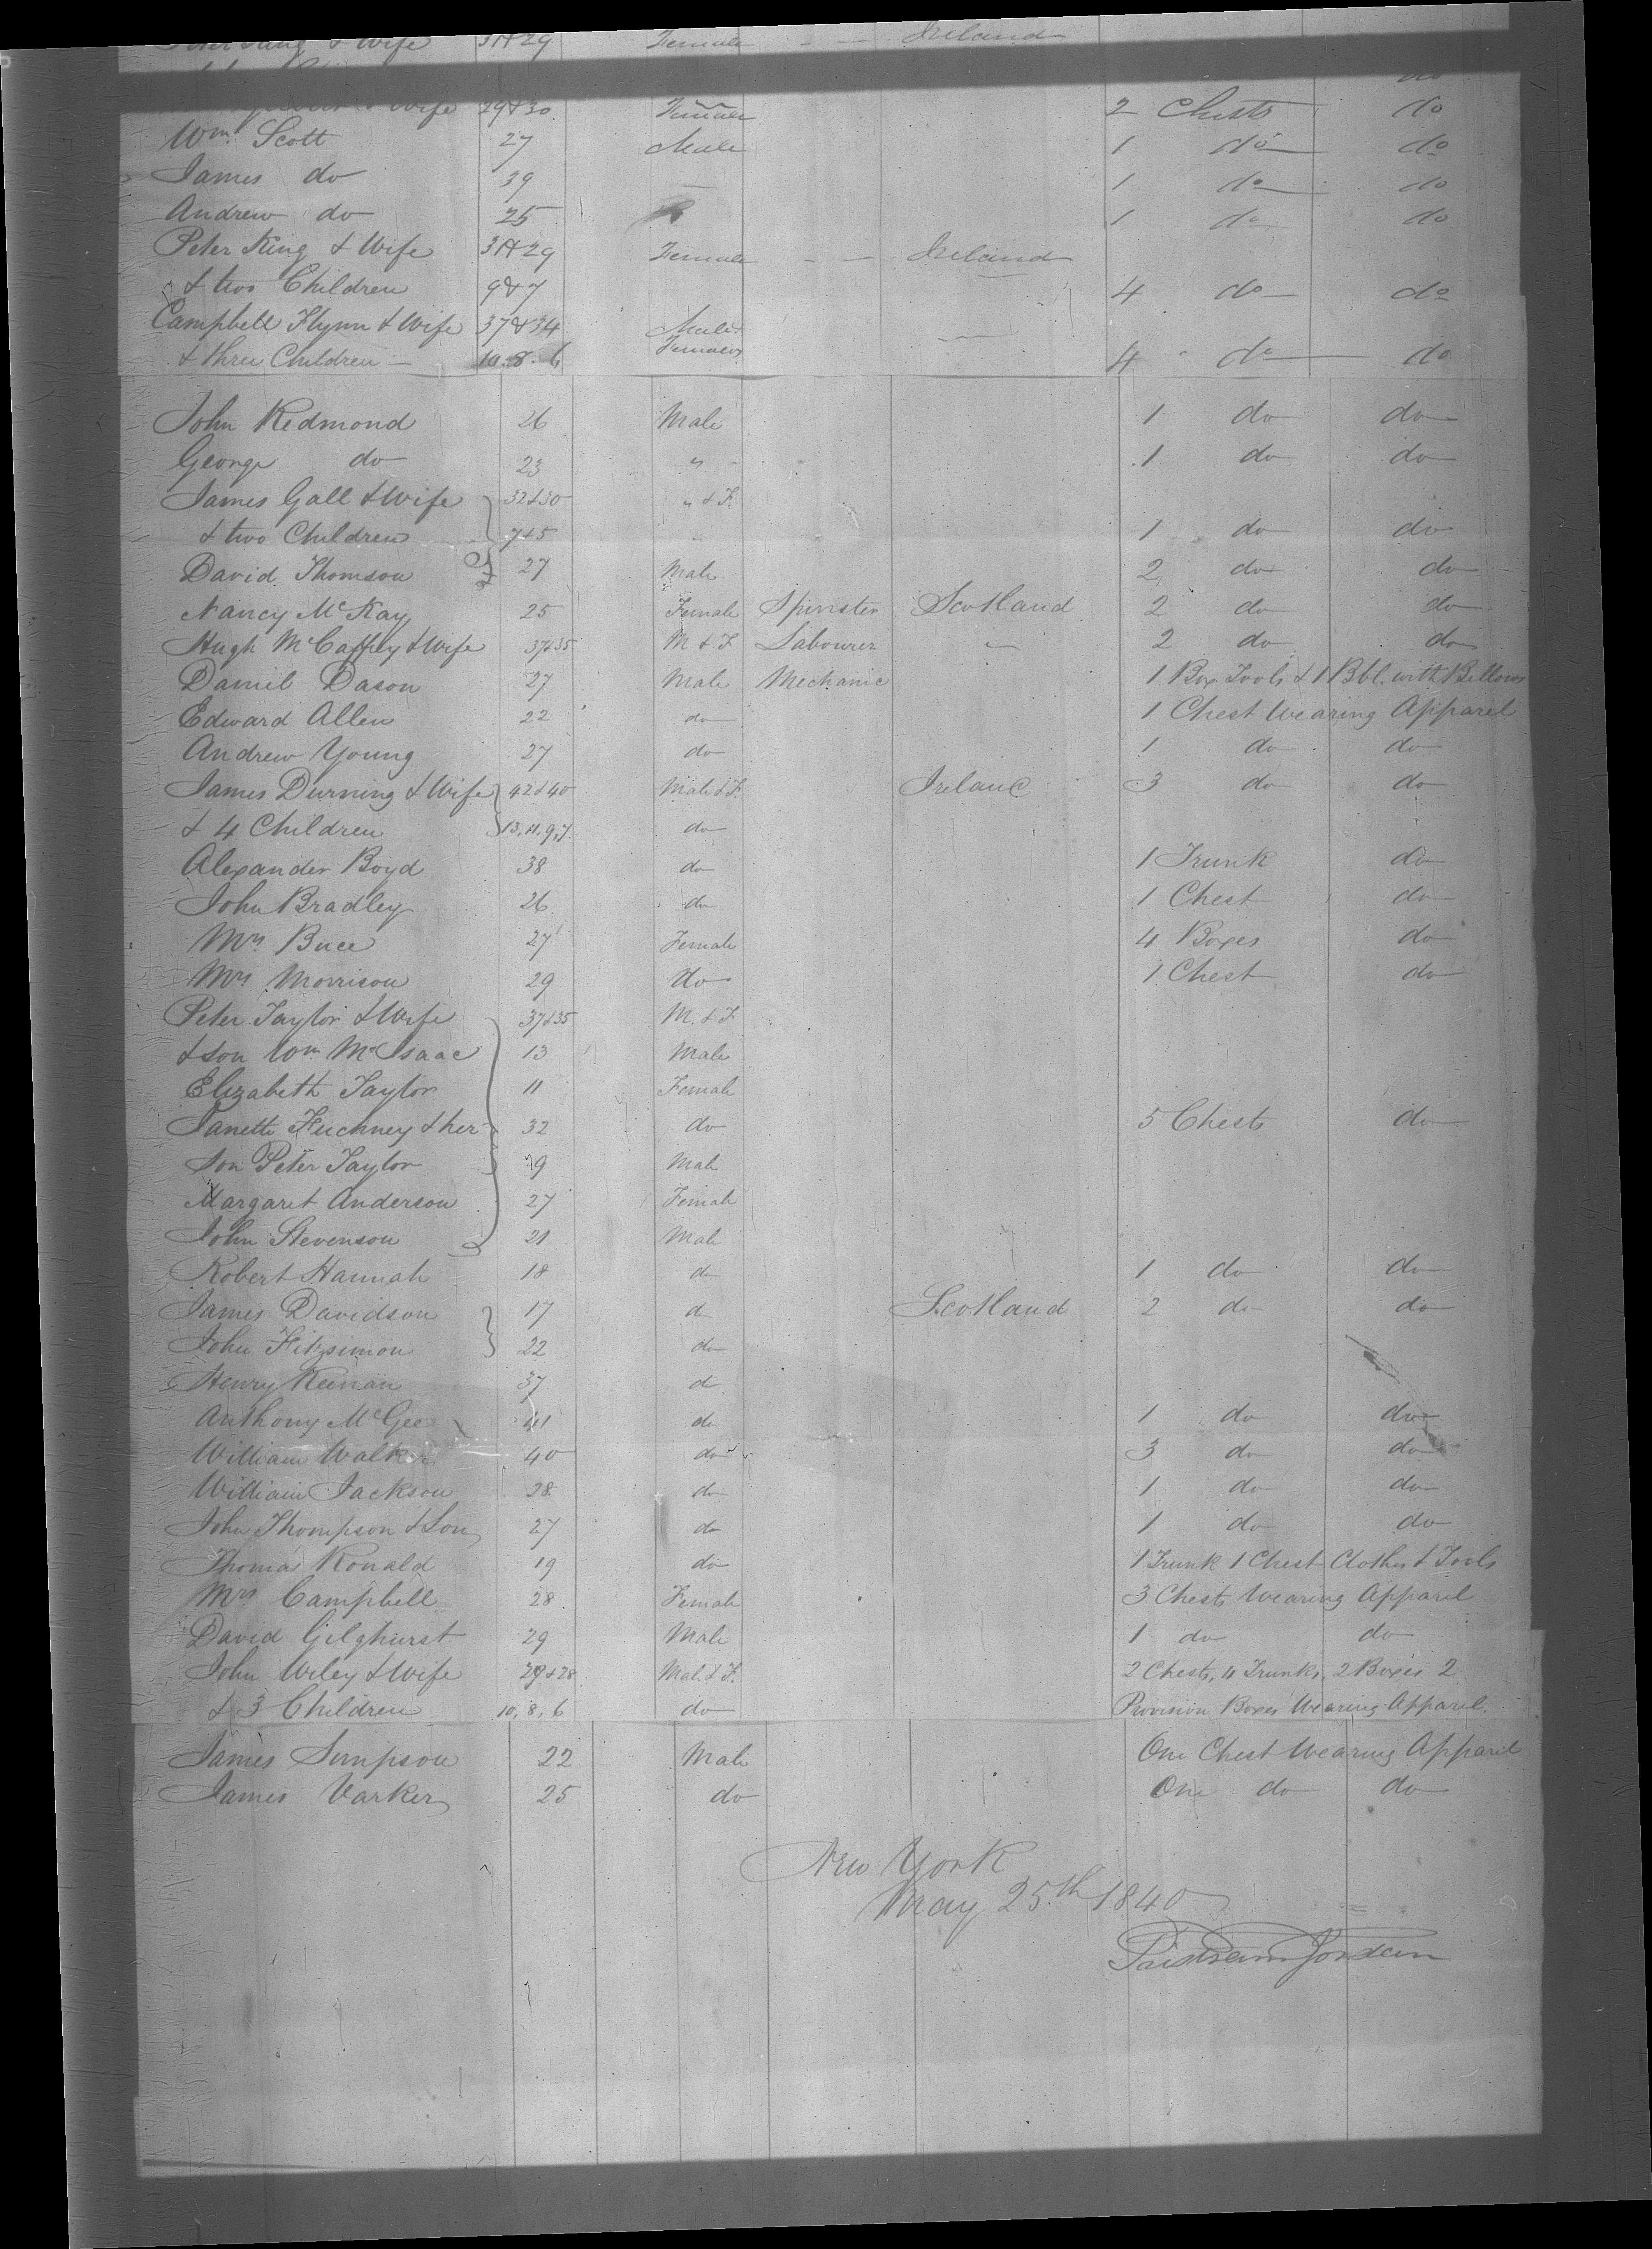 Peter King & Wife 31&29 Female Ireland
do
& Wife 29&30 Female 2 Chests do
Wm. Scott 27 Male 1 do do
James do 39 1 do do
Andrew do 25 1 do do
Peter King & Wife 31&29 Female Ireland
& two Children 9&7 4 do do
Campbell Flynn & Wife 37&34 Males
& three Children 10.8.6 Females 4 do do
John Redmond 26 Male 1 do do
George do 23 " 1 do do
James Gall & Wife 32&30 " & F.
& two Children 7&5 1 do do
David Thomson 27 Male 2 do do
Nancy McKay 25 Female Spinster Scotland 2 do do
Hugh McCaffely & Wife 37&35 M & F Labourer " 2 do do
Daniel Dason 27 Male Mechanic 1 Box Tools & 1 Bbl. with Bellows
Edward Allen 22 do 1 Chest Wearing Apparel
Andrew Young 27 do 1 do do
James Durning & Wife 42&40 Male & F. Ireland 3 do do
& 4 Children 13,11,9,7. do
Alexander Boyd 38 do 1 Trunk do
John Bradley 26 do 1 Chest do
Mrs. Buce 27 Female 4 Boxes do
Mrs Morrison 29 do 1 Chest do
Peter Taylor & Wife 37&35 M. & F
& son Wm McIsaac 13 Male
Elizabeth Taylor 11 Female
Janett Huchney & her 32 do 5 Chests do
Son Peter Taylor 9 Male
Margaret Anderson 27 Female
John Stevenson 21 Male
Robert Hannah 18 do 1 do do
James Davidson 17 do Scotland 2 do do
John Fitzsimon 22 do
Henry Keenan 37 do
Anthony McGee 41 do 1 do do
William Walker 40 do 3 do do
William Jackson 28 do 1 do do
John Thompson & Son 27 do 1 do do
Thomas Ronald 19 do 1 Trunk 1 Chest Clothes & Tools
Mrs Campbell 28 Female 3 Chests Wearing Apparel
David Gilghurst 29 Male 1 do do
John Wiley & Wife 29&28 Male & F. 2 Chests, 4 Trunks, 2 Boxes 2
& 3 Children 10,8,6 do Provision Boxes Wearing Apparel.
James Simpson 22 Male One Chest Wearing Apparel
James Varker 25 do One do do
New York
May 25th 1840
Tristram Jordan